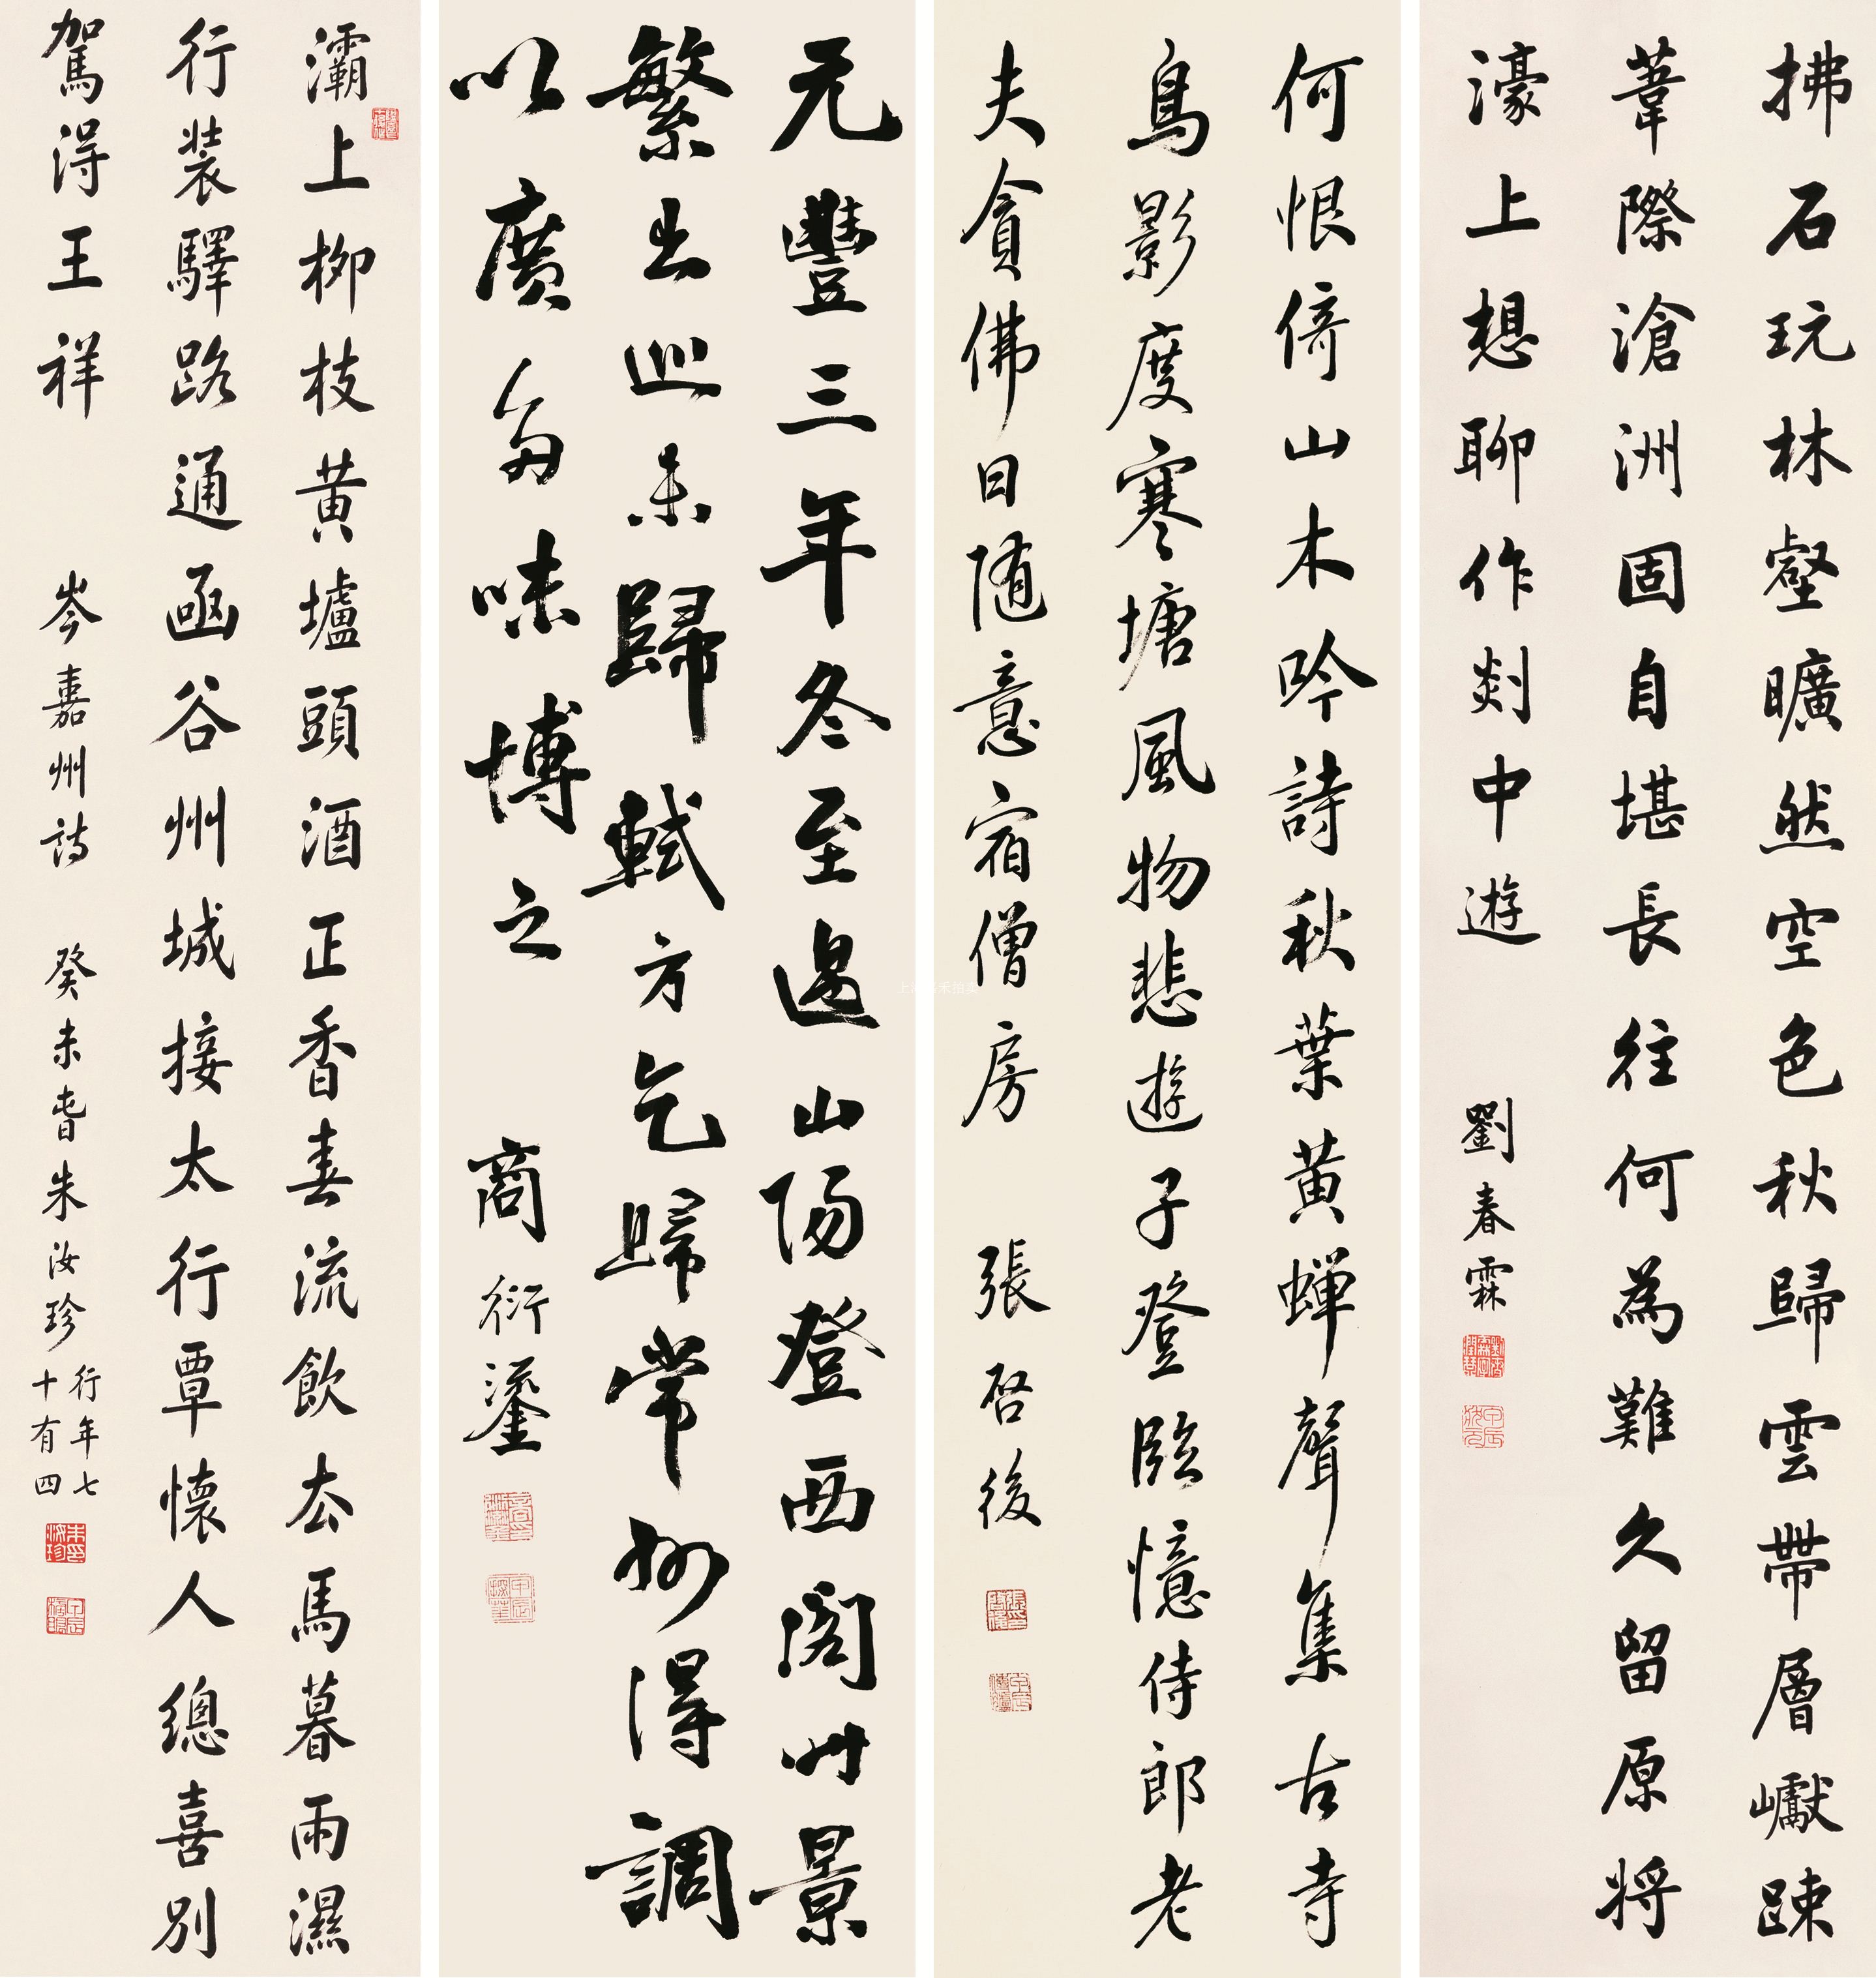 拂石玩林壑曠然空色秋歸雲帶層巘踈
葦際滄洲固自堪長往何為難久留原將
濠上想聊作剡中遊
劉春霖
何恨倚山木吟詩秋葉黃蟬聲集古寺
鳥影度寒塘風物悲遊子登臨憶侍郎老
夫貪佛日随意宿僧房
張启後
元豐三年冬至過山陽登西閣景
繁出巡未歸軾方乞歸常州得調
以廣味博之
商衍鎏
灞上柳枝黃壚頭酒正香春流飲去馬暮雨濕
行裝驛路通函谷州城接太行覃懷人總喜別
駕得王祥
岑嘉州詩 癸未旾朱汝珍
行年七
十有四
朱汝珍印